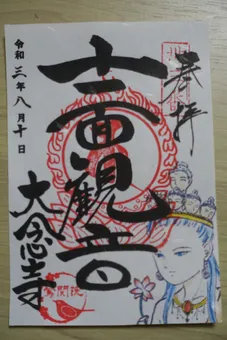 奉拝
十一面観音
令和三年八月十日
大念寺